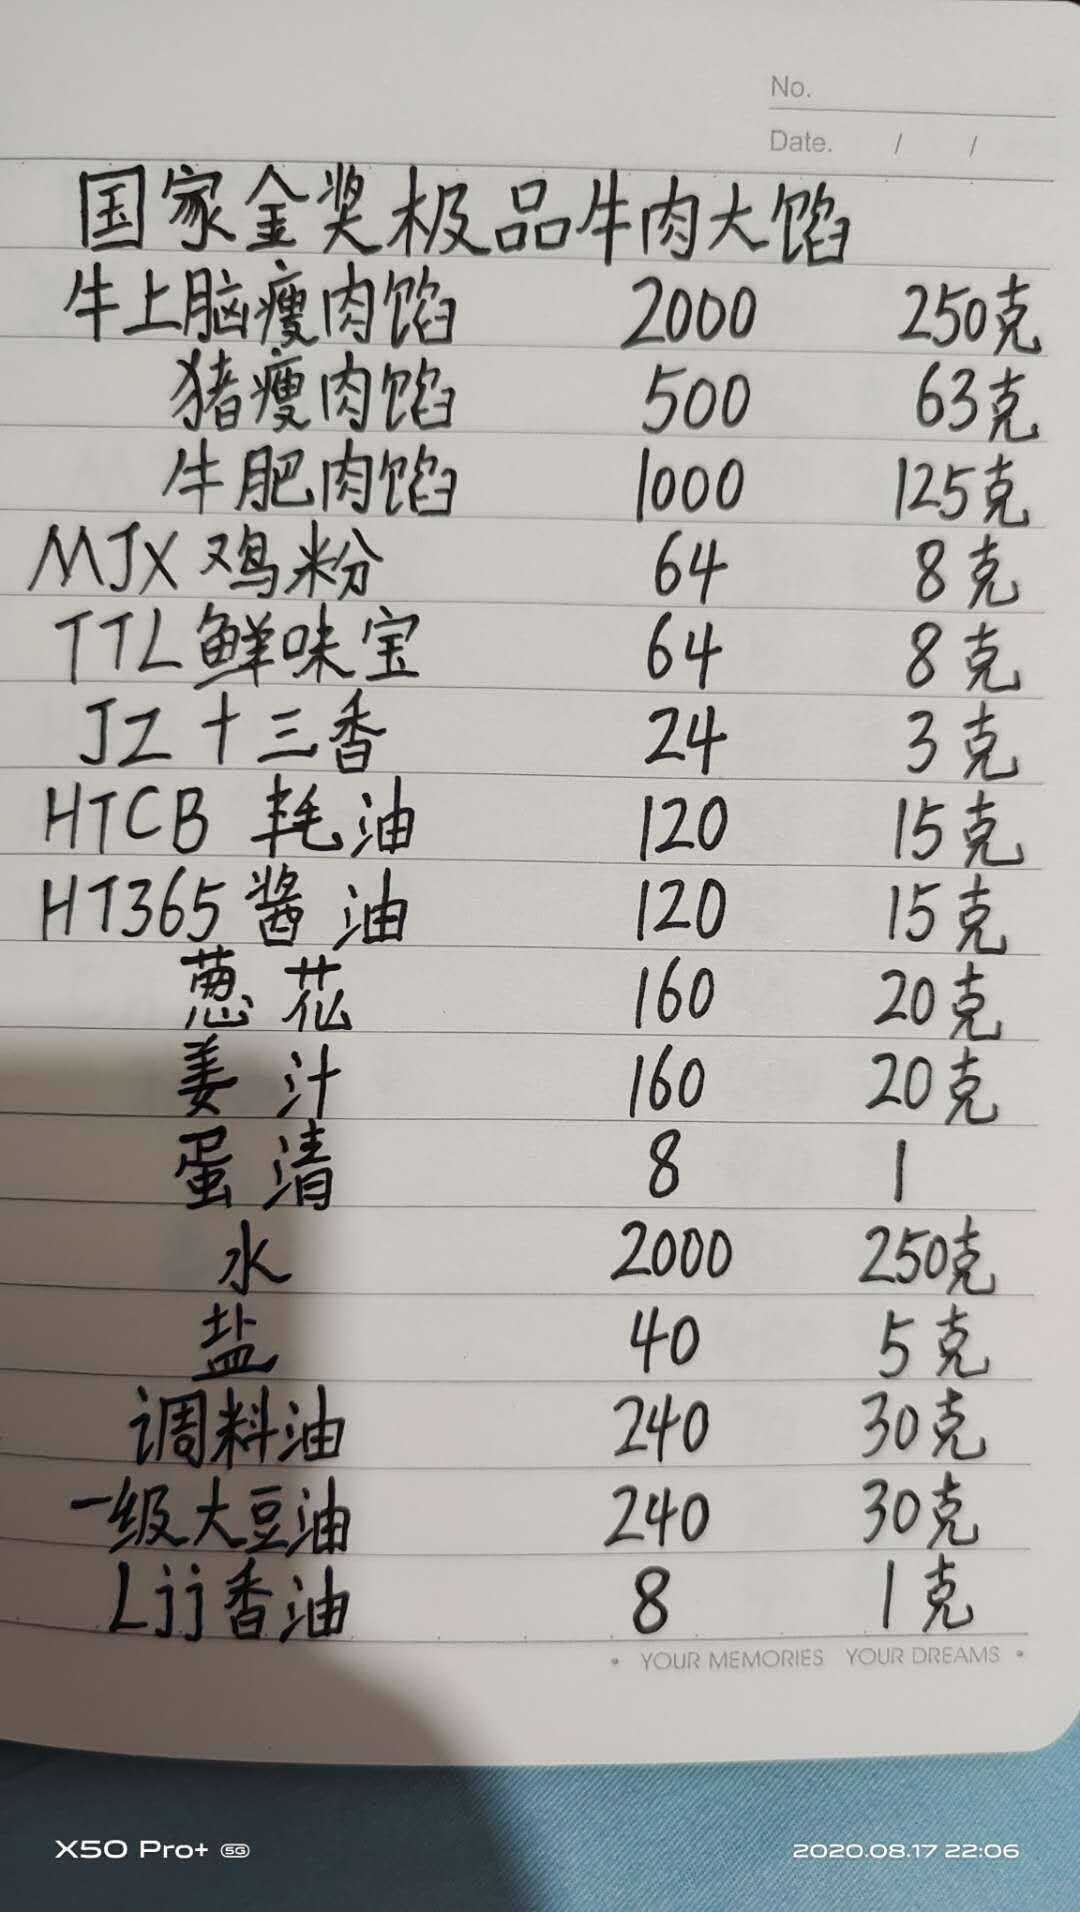 No.
Date. / /
国家金奖极品牛肉大馅
牛上脑瘦肉馅 2000 250克
猪瘦肉馅 500 63克
牛肥肉馅 1000 125克
MJX 鸡粉 64 8克
TTL鲜味宝 64 8克
JZ 十三香 24 3克
HTCB 耗油 120 15克
HT365酱油 120 15克
葱花 160 20克
姜汁 160 20克
蛋清 8 1
水 2000 250克
盐 40 5克
调料油 240 30克
一级大豆油 240 30克
Ljj香油 8 1克
• YOUR MEMORIES YOUR DREAMS •
X50 Pro+ 5G 2020.08.17 22:06